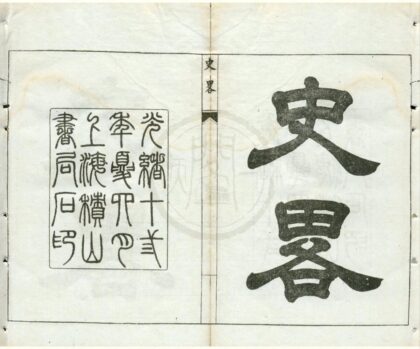 史畧
史畧
光緒十弍
年夏月
上海積山
書局石印